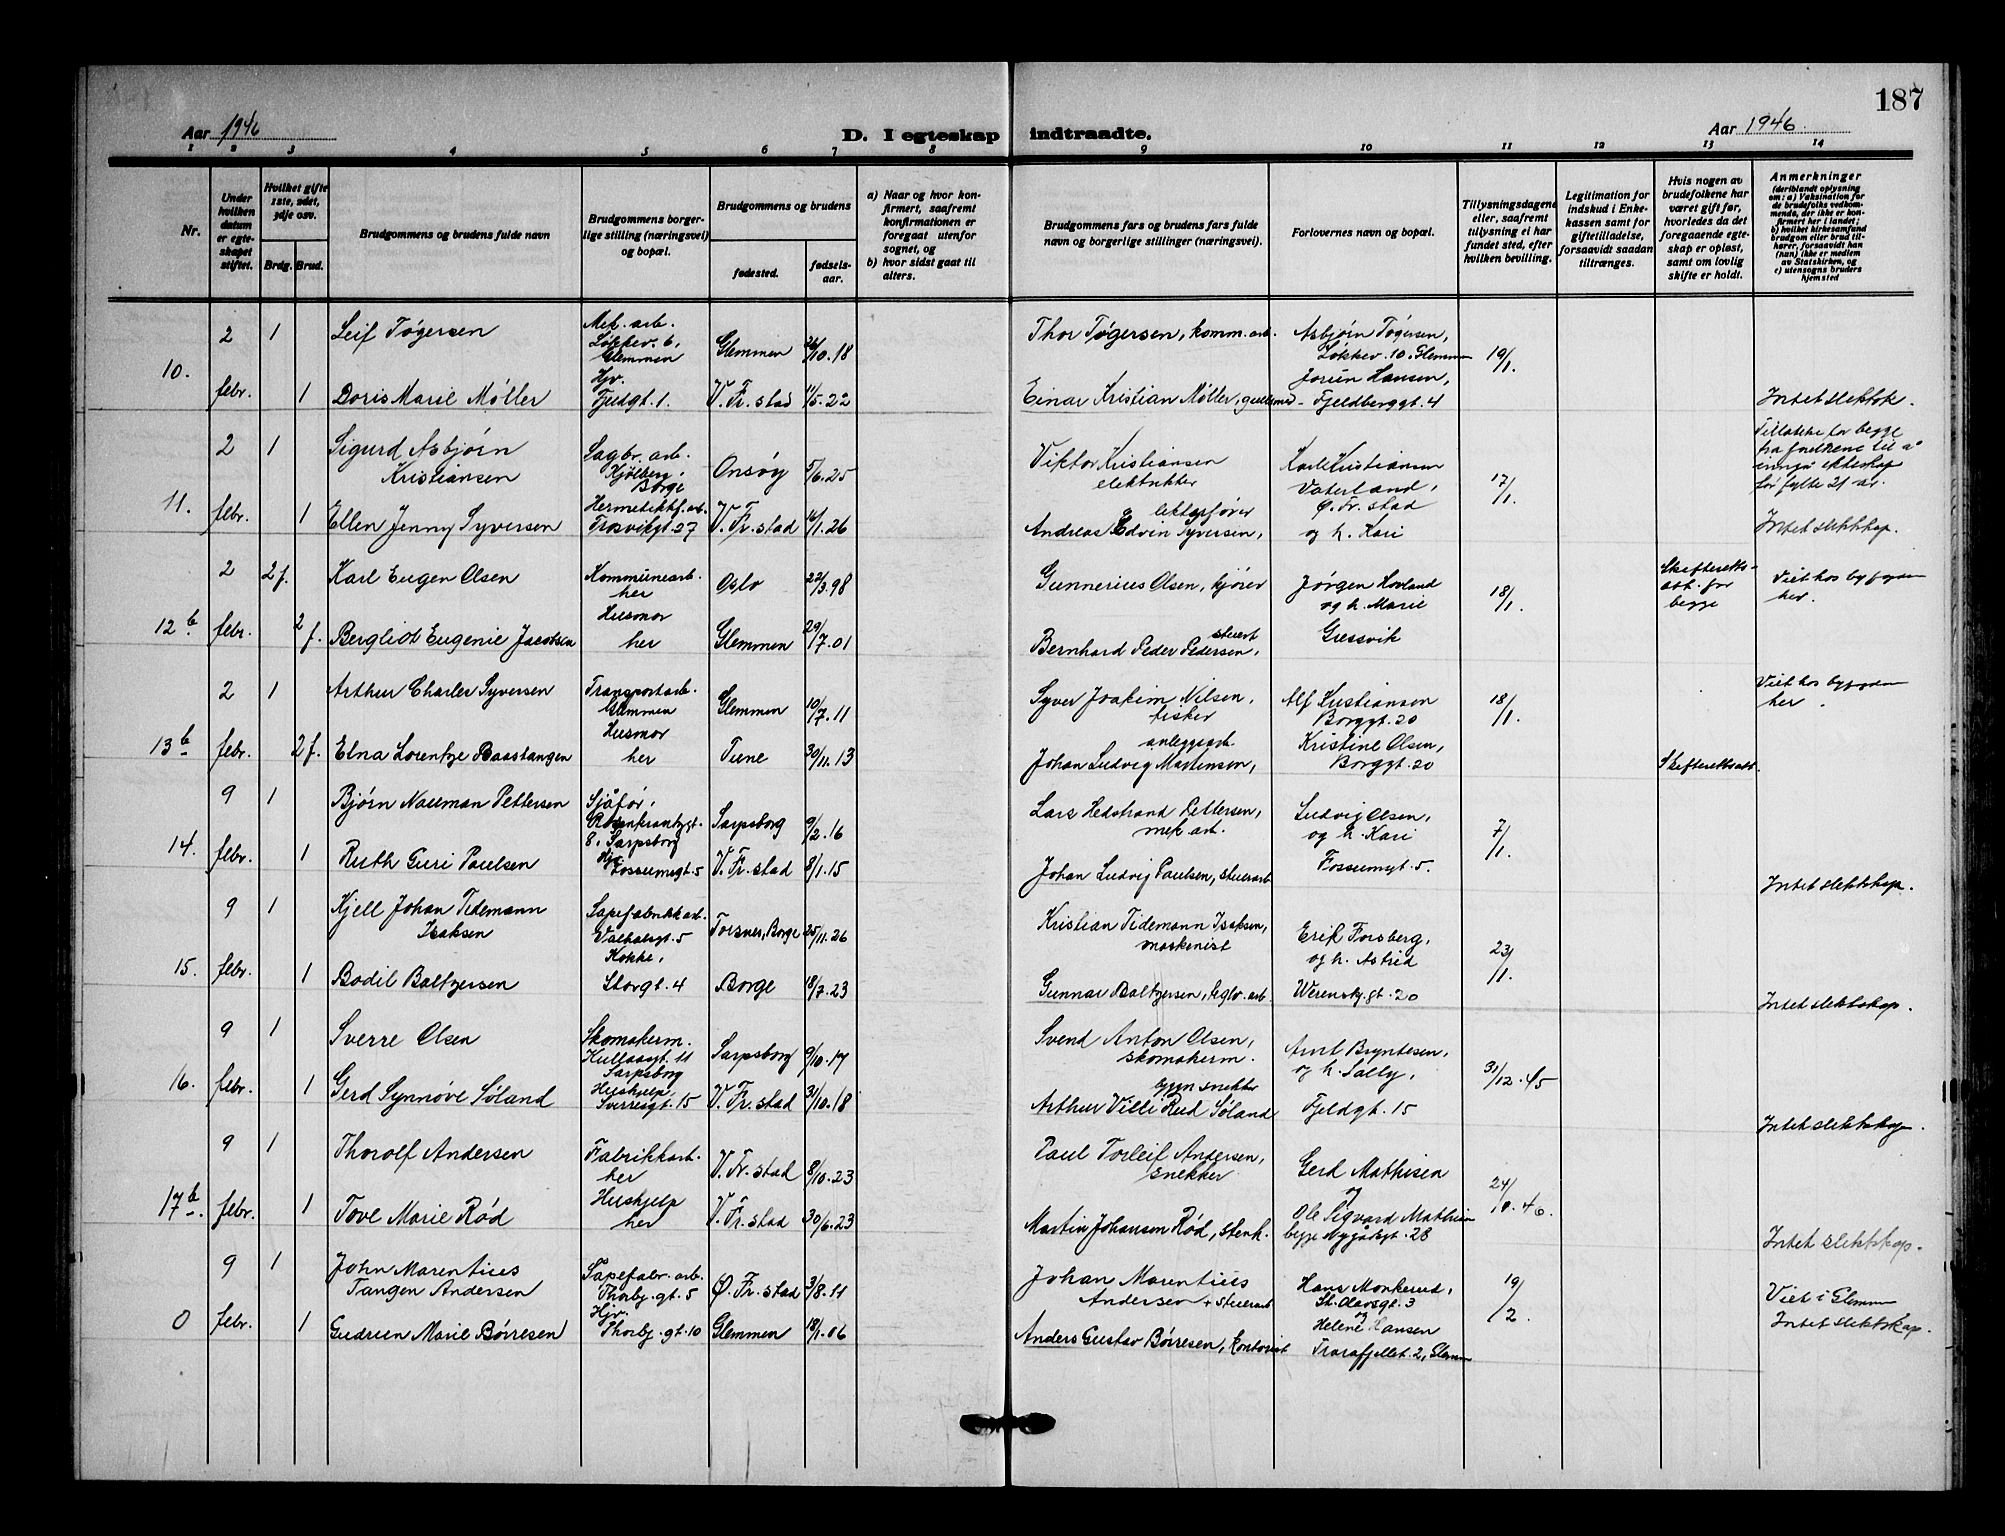 187
Aar 1946
D. I egteskap indtraadte.
Aar 1946
1 2 3 4 5 6 7 8 9 10 11 12 13 14
Nr.
Under hvilken datum er egteskapet stiftet.
Hvilket gifte 1ste, 2det, 3dje osv.
Brdg. Brud.
Brudgommens og brudens fulde navn
Brudgommens borgerlige stilling (næringsvei) og bopæl.
Brudgommens og brudens
fødested.
fødselsaar.
a) Naar og hvor konfirmert, saafremt konfirmationen er foregaat utenfor sognet, og
b) hvor sidst gaat til alters.
Brudgommens fars og brudens fars fulde navn og borgerlige stillinger (næringsvei).
Forlovernes navn og bopæl.
Tillysningsdagene eller, saafremt tillysning ei har fundet sted, efter hvilken bevilling.
Legitimation for indskud i Enkekassen samt for giftetilladelse, forsaavidt saadan tiltrænges.
Hvis nogen av brudefolkene har været gift før, hvorledes da det foregaaende egteskap er opløst, samt om lovlig skifte er holdt.
Anmerkninger
(deriblandt oplysning om: a) Vaksination for de brudefolks vedkommende, der ikke er konfirmert her i landet;
b) hvilket kirkesamfund brudgom eller brud tilhører, forsaavidt han (hun) ikke er medlem av Statskirken, og
c) utensogns bruders hjemsted
10.
2 febr.
1 Leif Tøgersen
Mek. arb. Løkkev. 6, Glemmen
Glemmen 26/10.18
Thor Tøgersen, komm. arb.
Asbjørn Tøgersen, Løkkev. 10. Glemmen
19/1.
1 Doris Marie Møller
Hjv. Fjeldgt. 1.
V. Fr. stad 11/5.22
Einar Kristian Møller, gullsmed
Jorun Hansen, Fjeldberggt. 4
Intet slektsk.
11.
2 febr.
1 Sigurd Asbjørn Kristiansen
Sagbr. arb. Kjølberg, Borge
Onsøy 5/6.25
Viktor Kristiansen elektrikker
Karl Kristiansen Vaterland, Ø. Fr. stad og h. Kari
17/1.
Tillatelse for begge fra foreldrene til å inngå ekteskap før fylte 21 år.
1 Ellen Jenny Syversen
Hermetikkf. arb. Trosvikgt. 27
V. Fr. stad 16/1.26
Andreas Edvin Syversen,
Intet slektskap.
12b
2 febr.
2 f. Karl Eugen Olsen
Kommunearb. her
Oslo 22/3.98
Gunnerius Olsen, kjører
Jørgen Hovland og h. Marie Gressvik
18/1.
Skifteretts-att. for begge
Viet hos byfogden her.
2 f. Bergliot Eugenie Jacobsen
Husmor her
Glemmen 29/7.01
Bernhard Peder Pedersen, stuert
13b
2 febr.
1 Arthur Charles Syversen
Transportarb. Glemmen
Glemmen 10/7.11
Syver Joakim Nilsen, fisker
Alf Kristiansen Borggt. 20
18/1.
Viet hos byfogden her.
2 f. Elna Lorentze Baastangen
Husmor her
Tune 30/11.13
anleggsarb. Johan Ludvig Martinsen,
Kristine Olsen, Borggt. 20
Skifterettsatt.
14.
9 febr.
1 Bjørn Nauman Pettersen
Sjåfør, Rosenkrantzgt. 8, Sarpsborg
Sarpsborg 9/2.16
Lars Hedstrand Pettersen, mek arb.
Ludvig Olsen, og h. Kari Fossumsgt. 5.
7/1.
1 Ruth Guri Paulsen
Hjv. Fossumsgt. 5
V. Fr. stad 8/1.15
Johan Ludvig Paulsen, stuerarb
Intet slektskap.
15.
9 febr.
1 Kjell Johan Tidemann Isaksen
Såpefabrikkarb. Valhalsgt. 5
Torsnes, Borge 25/11.26
Kristian Tidemann Isaksen, maskinist
Erik Forsberg, og h. Astrid Werenskj.gt. 20
23/1.
1 Bodil Baltzersen
Kokke, Storgt. 4
Borge 18/7.23
Gunnar Baltzersen, teglv. arb.
Intet slektskap.
16.
9 febr.
1 Sverre Olsen
Skomakerm. Kullaasgt. 11 Sarpsborg
Sarpsborg 9/10.17
Svend Anton Olsen, skomakerm.
Arnt Bryntesen, og h. Sally, Fjeldgt. 15
31/12.45
1 Gerd Synnøve Søland
Hushjelp Sverresgt. 15
V. Fr. stad 31/10.18
bygn snekker Arthur Villi Rud Søland
Intet slektskap.
17b
9 febr.
1 Thorolf Andersen
Fabrikkarb. her
V. Fr. stad 8/10.23
Paul Torleif Andersen, snekker
Gerd Mathisen og Ole Sigvard Mathisen begge Nygårdsgt. 28
24/1.46.
1 Tove Marie Rød
Hushjelp her
V. Fr. stad 30/6.23
Martin Johansen Rød, stenh.
Intet slektskap.
0
9 febr.
1 John Marentius Tangen Andersen
Såpefabr. arb. Thorbj. gt. 5
Ø. Fr. stad 3/8.11
Johan Marentius Andersen + stuerarb
Hans Monkerud, St. Olavsgt. 3 og Helene Hansen Trarafjellet. 2, Glemm
19/2.
Viet i Glemm
1 Gudrun Marie Børresen
Hjv. Thorbj. gt. 10
Glemmen 18/1.06
Anders Gustav Børresen, kontorist
Intet slektskap.